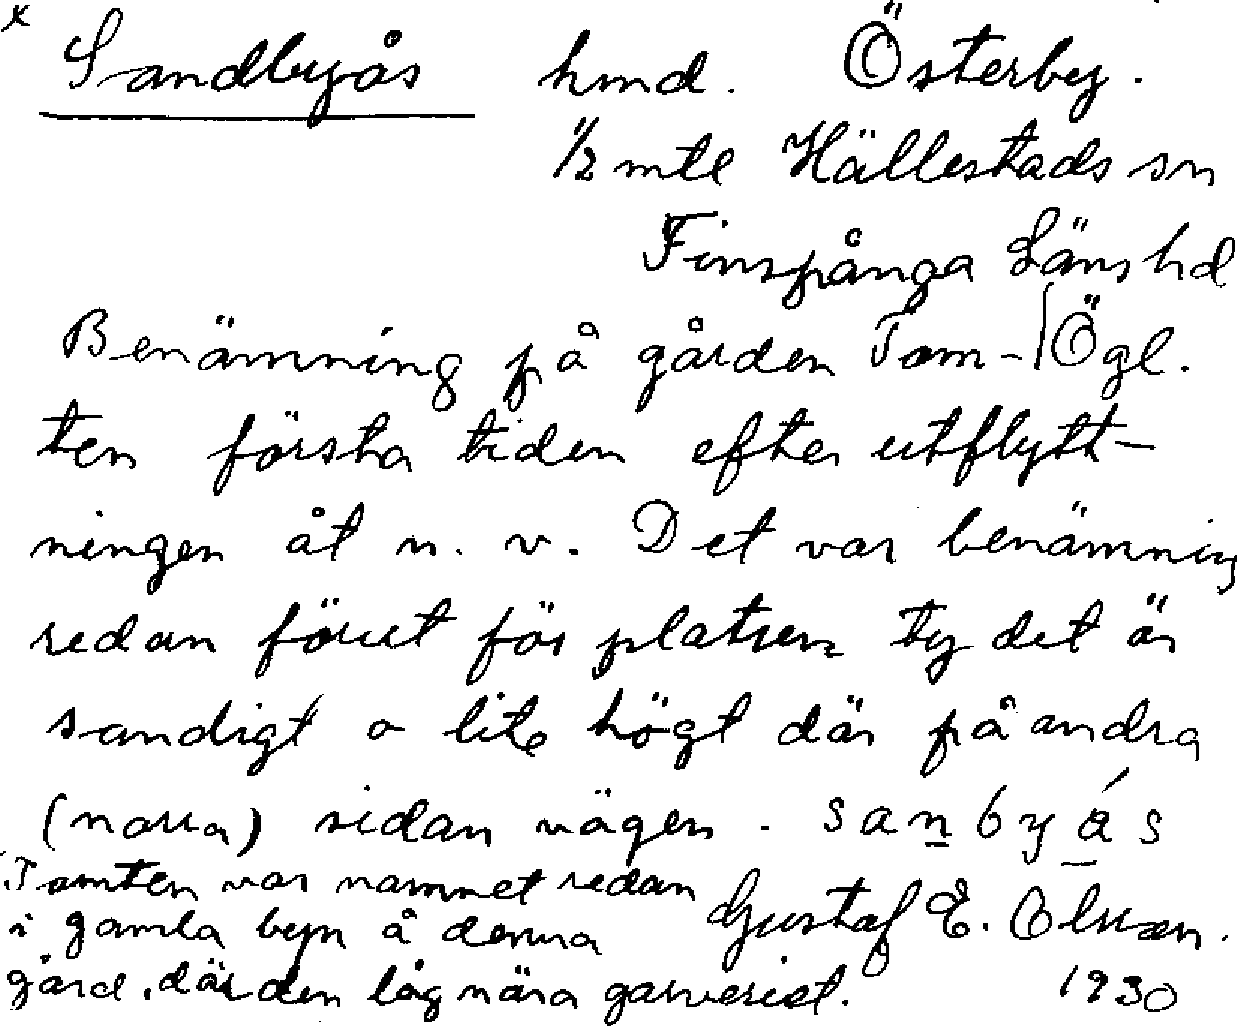 x
Sandbyås hmd. Österby.
1/2 mtl Hällestads sn
Finspånga Läns hd
Benämning på gården Tom- Ögl.
ten första tiden efter utflytt-
ningen åt n. v. Det var benämning
redan förut för platsen ty det är
sandigt o lite högt där på andra
(norra) sidan vägen. sanbyås
Tomten var namnet redan
i gamla byn å denna Gustaf E.
gård, där den låg nära garveriet. 1930